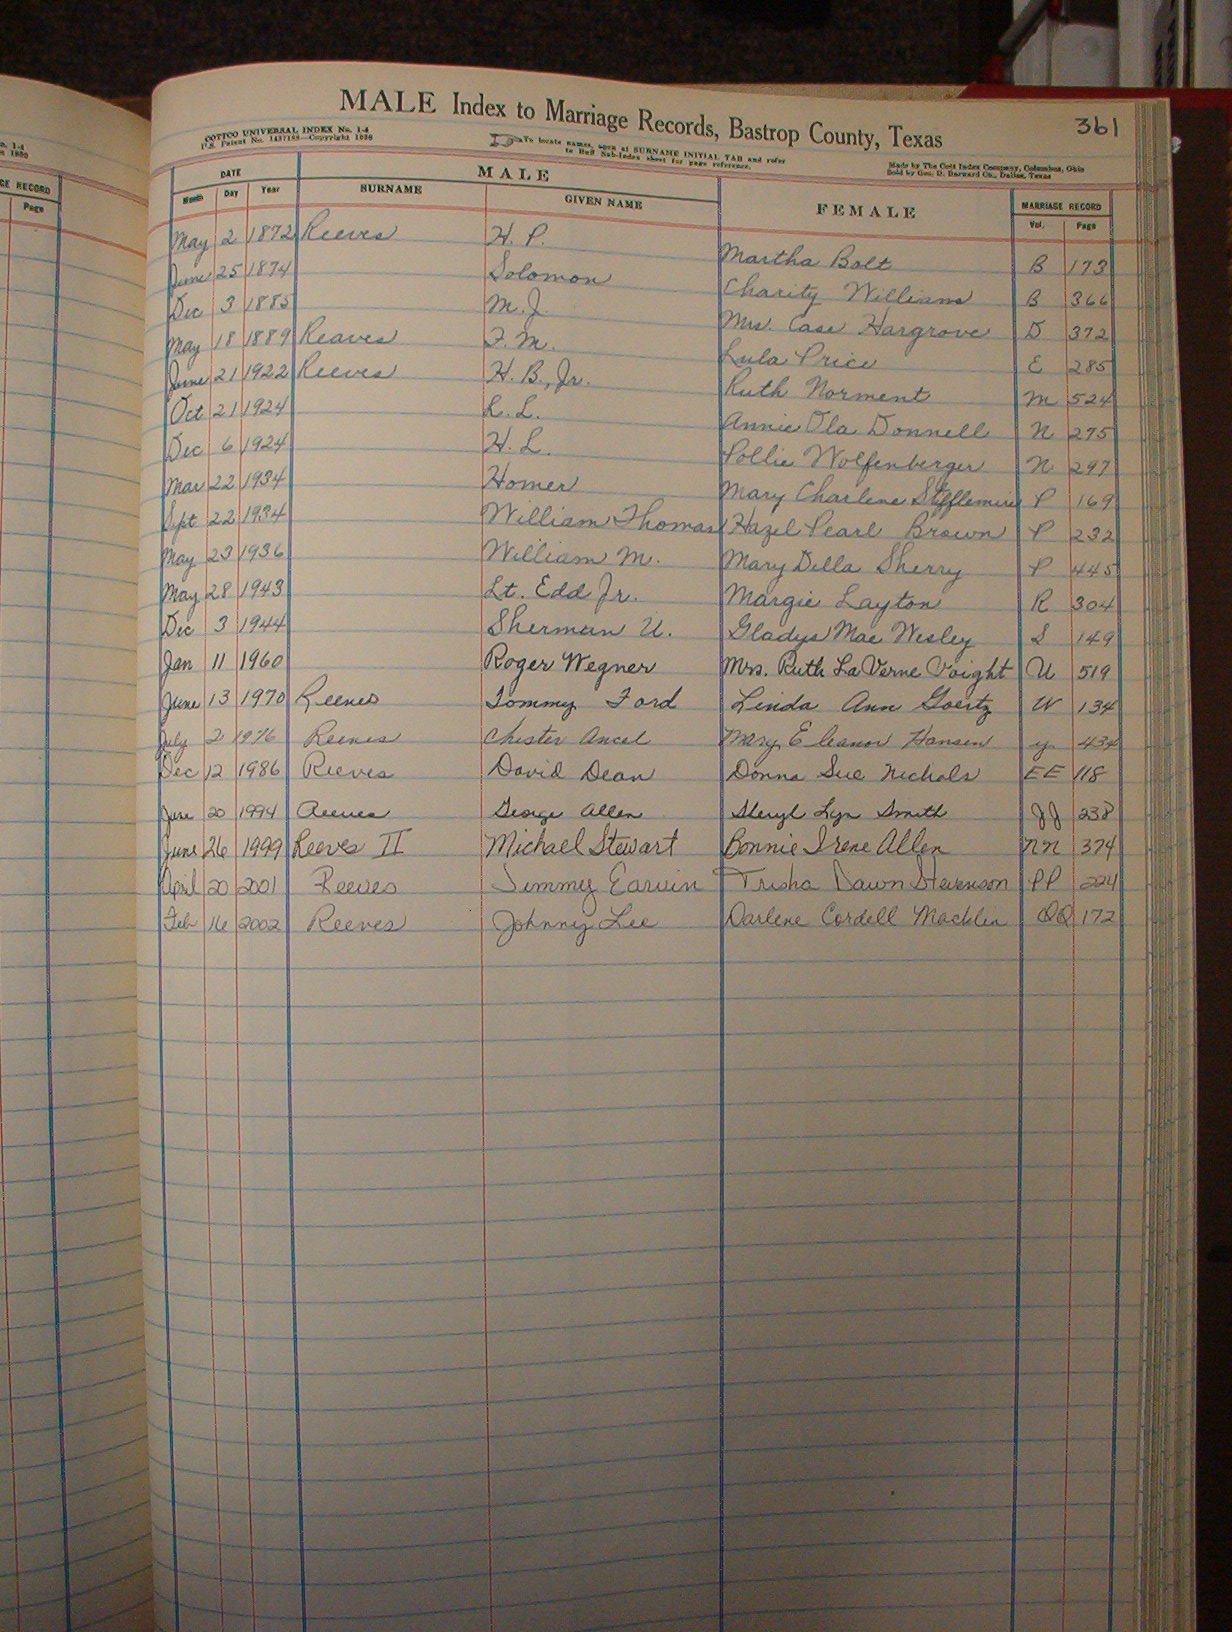 361
MALE Index to Marriage Records, Bastrop County, Texas
COTTCO UNIVERSAL INDEX No. 1-4
U.S. Patent No. 1437188—Copyright 1936
To locate names, open at SURNAME INITIAL TAB and refer
to Buff Sub-Index sheet for page reference.
Made by The Cott Index Company, Columbus, Ohio
Sold by Geo. D. Barnard Co., Dallas, Texas
GE RECORD
Page
DATE MALE FEMALE MARRIAGE RECORD
Month Day Year SURNAME GIVEN NAME Vol. Page
May 2 1872 Reeves H. P. Martha Bolt B 173
June 25 1874 Solomon Charity Williams B 366
Dec 3 1885 M. J. Mrs. Case Hargrove D 372
May 18 1889 Reaves F. M. Lula Price E 285
June 21 1922 Reeves H. B., Jr. Ruth Norment M 524
Oct 21 1924 L. L. Annie Ola Donnell N 275
Dec 6 1924 H. L. Pollie Wolfenberger N 297
Mar 22 1934 Homer Mary Charlene Stifflemire P 169
Sept 22 1934 William Thomas Hazel Pearl Brown P 232
May 23 1936 William M. Mary Della Sherry P 445
May 28 1943 Lt. Edd Jr. Margie Layton R 304
Dec 3 1944 Sherman U. Gladys Mae Wesley S 149
Jan 11 1960 Roger Wegner Mrs. Ruth LaVerne Voight U 519
June 13 1970 Reeves Tommy Ford Linda Ann Goertz W 134
July 2 1976 Reeves Chester Ancel Mary Eleanor Hansen y 434
Dec 12 1986 Reeves David Dean Donna Sue Nichols EE 118
June 20 1994 Reeves George Allen Sheryl Lyn Smith JJ 238
June 26 1999 Reeves II Michael Stewart Bonnie Irene Allen NN 374
April 20 2001 Reeves Jimmy Earvin Trisha Dawn Stevenson PP 224
Feb 16 2002 Reeves Johnny Lee Darlene Cordell Macklin QQ 172